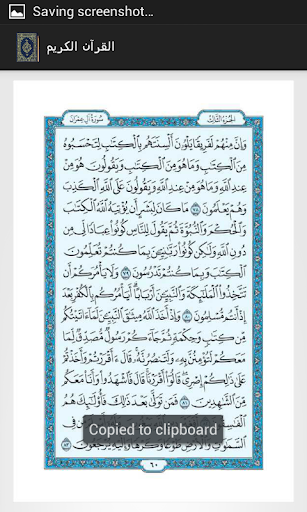 Saving screenshot...
القرآن الكريم
الجزء الثالث
سورة آل عمران
وَإِنَّ مِنْهُمْ لَفَرِيقًا يَلْوُۥنَ أَلْسِنَتَهُم بِٱلْكِتَٰبِ لِتَحْسَبُوهُ
مِنَ ٱلْكِتَٰبِ وَمَا هُوَ مِنَ ٱلْكِتَٰبِ وَيَقُولُونَ هُوَ مِنْ
عِندِ ٱللَّهِ وَمَا هُوَ مِنْ عِندِ ٱللَّهِ وَيَقُولُونَ عَلَى ٱللَّهِ ٱلْكَذِبَ
وَهُمْ يَعْلَمُونَ ٧٨ مَا كَانَ لِبَشَرٍ أَن يُؤْتِيَهُ ٱللَّهُ ٱلْكِتَٰبَ
وَٱلْحُكْمَ وَٱلنُّبُوَّةَ ثُمَّ يَقُولَ لِلنَّاسِ كُونُوا۟ عِبَادًا لِّى مِن
دُونِ ٱللَّهِ وَلَٰكِن كُونُوا۟ رَبَّٰنِيِّۦنَ بِمَا كُنتُمْ تُعَلِّمُونَ
ٱلْكِتَٰبَ وَبِمَا كُنتُمْ تَدْرُسُونَ ٧٩ وَلَا يَأْمُرَكُمْ أَن
تَتَّخِذُوا۟ ٱلْمَلَٰٓئِكَةَ وَٱلنَّبِيِّۦنَ أَرْبَابًا أَيَأْمُرُكُم بِٱلْكُفْرِ بَعْدَ
إِذْ أَنتُم مُّسْلِمُونَ ٨٠ وَإِذْ أَخَذَ ٱللَّهُ مِيثَٰقَ ٱلنَّبِيِّۦنَ لَمَآ ءَاتَيْتُكُم
مِّن كِتَٰبٍ وَحِكْمَةٍ ثُمَّ جَآءَكُمْ رَسُولٌ مُّصَدِّقٌ لِّمَا
مَعَكُمْ لَتُؤْمِنُنَّ بِهِۦ وَلَتَنصُرُنَّهُۥ قَالَ ءَأَقْرَرْتُمْ وَأَخَذْتُمْ
عَلَىٰ ذَٰلِكُمْ إِصْرِى قَالُوٓا۟ أَقْرَرْنَا قَالَ فَٱشْهَدُوا۟ وَأَنَا۠ مَعَكُم
مِّنَ ٱلشَّٰهِدِينَ ٨١ فَمَن تَوَلَّىٰ بَعْدَ ذَٰلِكَ فَأُو۟لَٰٓئِكَ هُمُ
ٱلْفَٰسِقُونَ مَن فِى
ٱلسَّمَٰوَٰتِ وَٱلْأَرْضِ طَوْعًا وَكَرْهًا وَإِلَيْهِ يُرْجَعُونَ ٨٣
Copied to clipboard
٦٠